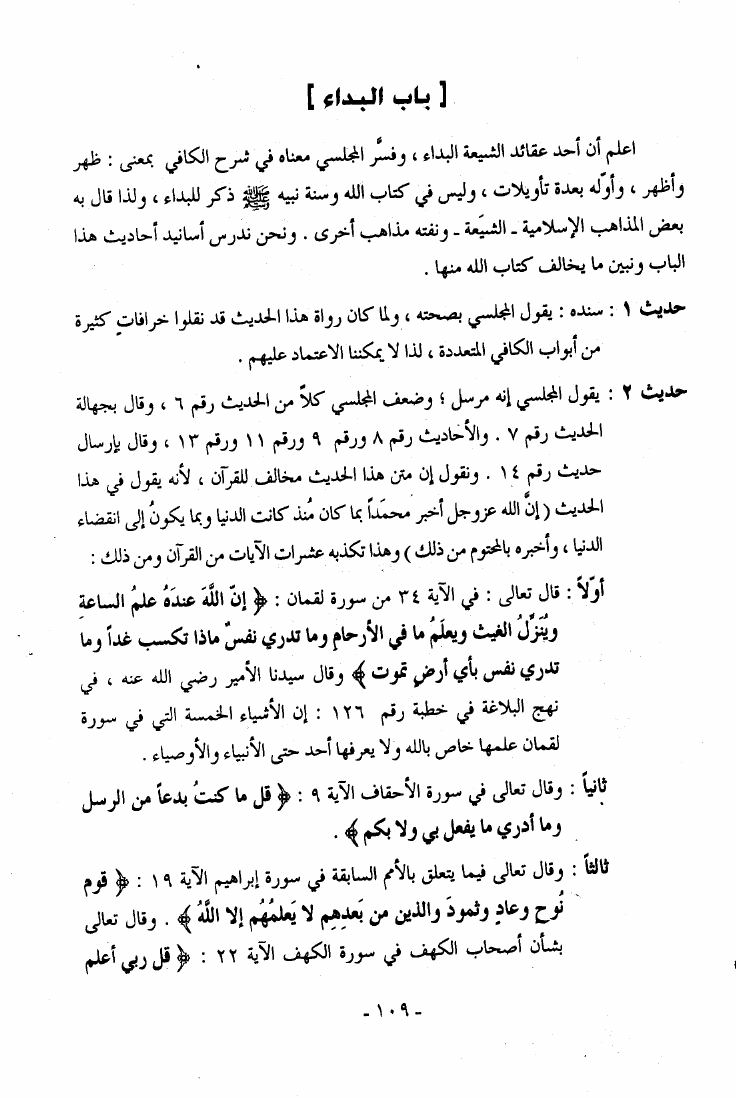 [ باب البداء ]
اعلم أن أحد عقائد الشيعة البداء ، وفسَّر المجلسي معناه في شرح الكافي بمعنى : ظهر
وأظهر ، وأوّله بعدة تأويلات ، وليس في كتاب الله وسنة نبيه ﷺ ذكر للبداء ، ولذا قال به
بعض المذاهب الإسلامية ـ الشيَعة ـ ونفته مذاهب أخرى . ونحن ندرس أسانيد أحاديث هذا
الباب ونبين ما يخالف كتاب الله منها .
حديث ١ : سنده : يقول المجلسي بصحته ، ولما كان رواة هذا الحديث قد نقلوا خرافاتٍ كثيرة
من أبواب الكافي المتعددة ، لذا لا يمكننا الاعتماد عليهم .
حديث ٢ : يقول المجلسي إنه مرسل ؛ وضعف المجلسي كلاً من الحديث رقم ٦ ، وقال بجهالة
الحديث رقم ٧ . والأحاديث رقم ٨ ورقم ٩ ورقم ١١ ورقم ١٣ ، وقال بإرسال
حديث رقم ١٤ . ونقول إن متن هذا الحديث مخالف للقرآن ، لأنه يقول في هذا
الحديث ( إنَّ الله عزوجل أخبر محمَداً بما كان مُنذ كانت الدنيا وبما يكونُ إلى انقضاء
الدنيا ، وأخبره بالمحتوم من ذلك ) وهذا تكذبه عشرات الآيات من القرآن ومن ذلك :
أوّلاً : قال تعالى : في الآية ٣٤ من سورة لقمان : ﴿ إنّ اللَّهَ عندَهُ علمُ الساعةِ
ويُنَزِّلُ الغيثَ ويعلَمُ ما في الأرحام وما تدري نفسٌ ماذا تكسب غداً وما
تدري نفس بأي أرضٍ تموت ﴾ وقال سيدنا الأمير رضي الله عنه ، في
نهج البلاغة في خطبة رقم ١٢٦ : إن الأشياء الخمسة التي في سورة
لقمان علمها خاص بالله ولا يعرفها أحد حتى الأنبياء والأوصياء .
ثانياً : وقال تعالى في سورة الأحقاف الآية ٩ : ﴿ قل ما كنتُ بدعاً من الرسل
وما أدري ما يفعل بي ولا بكم ﴾ .
ثالثاً : وقال تعالى فيما يتعلق بالأمم السابقة في سورة إبراهيم الآية ١٩ : ﴿ قوم
نُوح وعادٍ وثمودَ والذين من بَعدِهِم لا يَعلمُهُم إلا اللَّهُ ﴾ . وقال تعالى
بشأن أصحاب الكهف في سورة الكهف الآية ٢٢ : ﴿ قل ربي أعلم
- ١٠٩ -